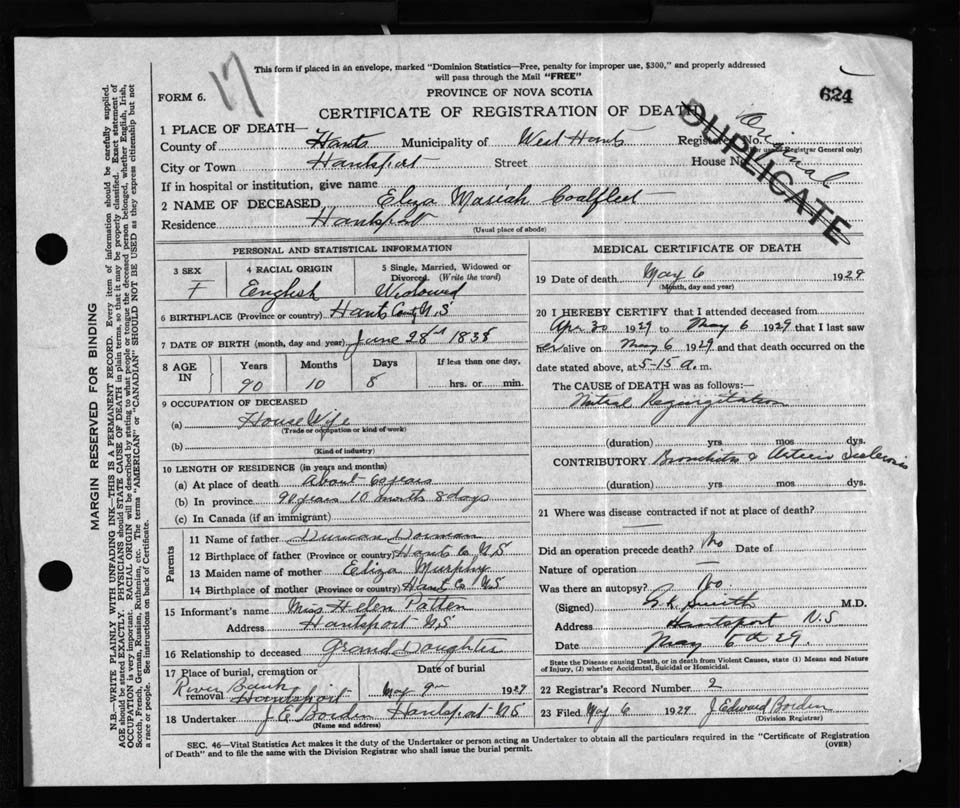 17
This form if placed in an envelope, marked "Dominion Statistics—Free, penalty for improper use, $300," and properly addressed
will pass through the Mail "FREE"
FORM 6.
PROVINCE OF NOVA SCOTIA
624
CERTIFICATE OF REGISTRATION OF DEATH
DUPLICATE
Original
1 PLACE OF DEATH—
County of Hants Municipality of West Hants Registered No.
City or Town Hantsport Street House No.
If in hospital or institution, give name
2 NAME OF DECEASED Eliza Mariah Coalfleet
Residence Hantsport
(Usual place of abode)
PERSONAL AND STATISTICAL INFORMATION
3 SEX 4 RACIAL ORIGIN 5 Single, Married, Widowed or Divorced. (Write the word)
F English Widowed
6 BIRTHPLACE (Province or country) Hants County N.S
7 DATE OF BIRTH (month, day and year) June 28th 1838
8 AGE IN Years Months Days If less than one day,
90 10 8 hrs. or min.
9 OCCUPATION OF DECEASED
(a) House Wife
(Trade or occupation or kind of work)
(b)
(Kind of industry)
10 LENGTH OF RESIDENCE (in years and months)
(a) At place of death About 60 years
(b) In province 90 years 10 months 8 days
(c) In Canada (if an immigrant)
Parents
11 Name of father Duncan Dorman
12 Birthplace of father (Province or country) Hants Co N S
13 Maiden name of mother Eliza Murphy
14 Birthplace of mother (Province or country) Hant Co N S
15 Informant's name Miss Helen Patten
Address Hantsport N.S
16 Relationship to deceased Grand Daughter
17 Place of burial, cremation or removal Date of burial
River Bank Hantsport May 9th 1929
18 Undertaker J E Borden Hantsport N S
(Name and address)
MEDICAL CERTIFICATE OF DEATH
19 Date of death May 6 1929
(Month, day and year)
20 I HEREBY CERTIFY that I attended deceased from
Apr 30 1929 to May 6 1929 that I last saw
her alive on May 6 1929 and that death occurred on the
date stated above, at 5-15 a. m.
The CAUSE OF DEATH was as follows:—
Mitral Regurgitation
(duration) yrs. mos. dys.
CONTRIBUTORY Bronchitis & Arterio Sclerosis
(duration) yrs. mos. dys.
21 Where was disease contracted if not at place of death?
—
Did an operation precede death? No Date of
Nature of operation —
Was there an autopsy? No
(Signed) Smith M.D.
Address Hantsport N.S
Date May 6th 29.
State the Disease causing Death, or in death from Violent Causes, state (1) Means and Nature
of Injury, (2) whether Accidental, Suicidal or Homicidal.
22 Registrar's Record Number 2
23 Filed May 6 1929 J Edward Borden
(Division Registrar)
SEC. 46—Vital Statistics Act makes it the duty of the Undertaker or person acting as Undertaker to obtain all the particulars required in the "Certificate of Registration
of Death" and to file the same with the Division Registrar who shall issue the burial permit.
(OVER)
MARGIN RESERVED FOR BINDING
N.B.—WRITE PLAINLY WITH UNFADING INK—THIS IS A PERMANENT RECORD. Every item of information should be carefully supplied.
AGE should be stated EXACTLY. PHYSICIANS should STATE CAUSE OF DEATH in plain terms, so that it may be properly classified. Exact statement of
OCCUPATION is very important. RACIAL ORIGIN will be described by stating to what people or tongue the deceased person belonged, whether English, Irish,
Scotch, French, German, Russian, Ruthenian, etc. The terms "AMERICAN" or "CANADIAN" SHOULD NOT BE USED as they express citizenship but not
a race or people. See instructions on back of Certificate.